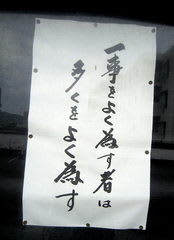 一事をよく為す者は
多くをよく為す